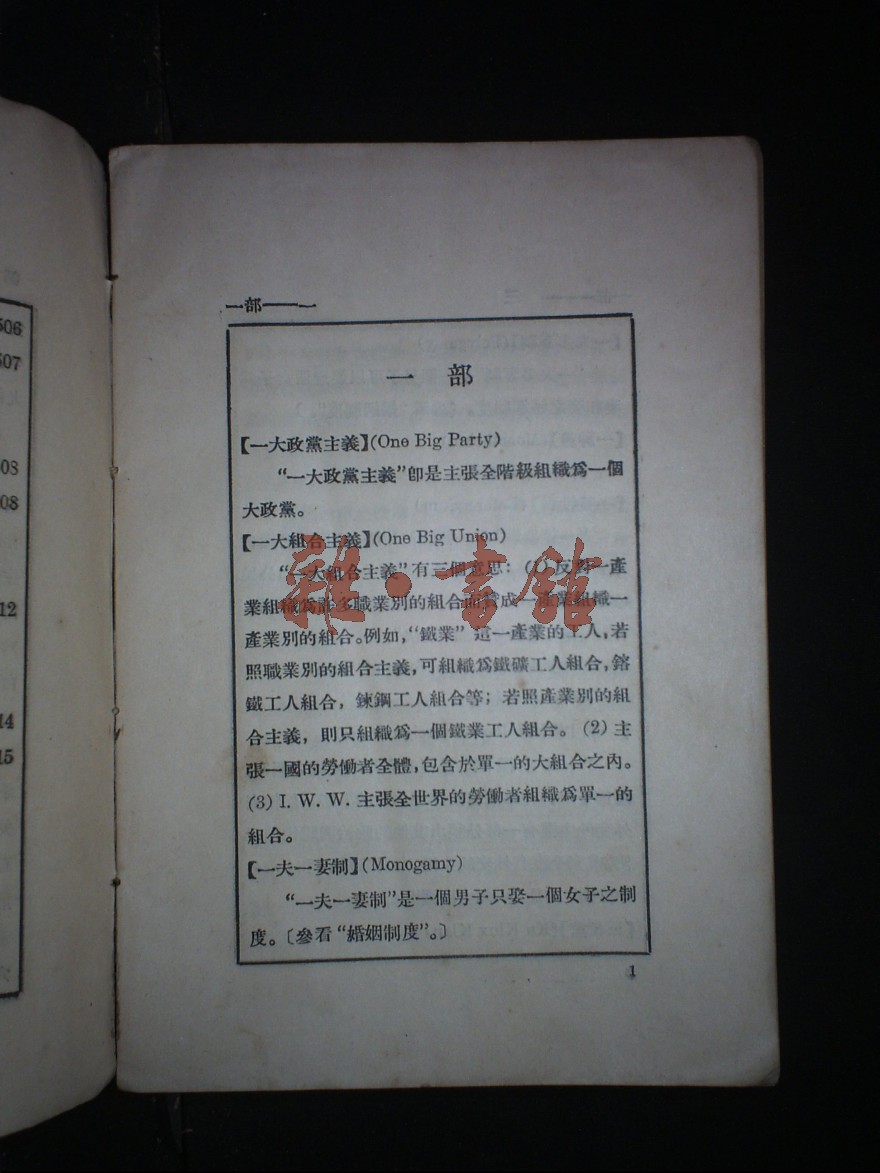 506
507
08
08
12
14
15
一部——一
一部
【一大政黨主義】(One Big Party)
“一大政黨主義”卽是主張全階級組織爲一個
大政黨。
【一大組合主義】(One Big Union)
“一大組合主義”有三個意思：(1)反對一產
業組織爲許多職業別的組合而贊成一產業組織一
產業別的組合。例如，“鐵業”這一產業的工人，若
照職業別的組合主義，可組織爲鐵礦工人組合，鎔
鐵工人組合，鍊鋼工人組合等；若照產業別的組
合主義，則只組織爲一個鐵業工人組合。(2)主
張一國的勞働者全體，包含於單一的大組合之內。
(3) I. W. W. 主張全世界的勞働者組織爲單一的
組合。
【一夫一妻制】(Monogamy)
“一夫一妻制”是一個男子只娶一個女子之制
度。〔參看“婚姻制度”。〕
1
雜·書館